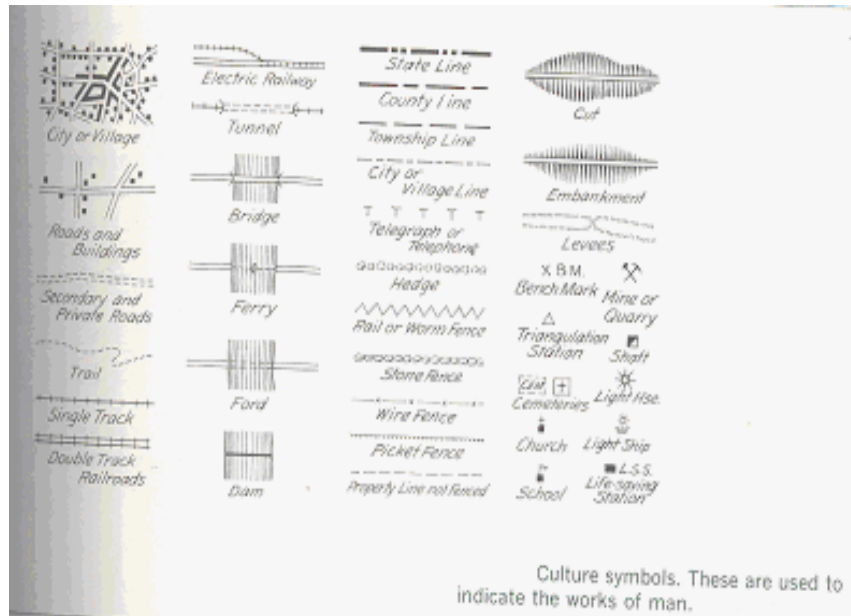 City or Village
Roads and
Buildings
Secondary and
Private Roads
Trail
Single Track
Double Track
Railroads
Electric Railway
Tunnel
Bridge
Ferry
Ford
Dam
State Line
County Line
Township Line
City or
Village Line
Telegraph or
Telephone
Hedge
Rail or Worm Fence
Stone Fence
Wire Fence
Picket Fence
Property Line not Fenced
Cut
Embankment
Levees
X B.M.
Bench Mark
Mine or
Quarry
Triangulation
Station
Shaft
Cem
Cemeteries
Light Hse.
Church
Light Ship
School
L.S.S.
Life-saving
Station
Culture symbols. These are used to
indicate the works of man.